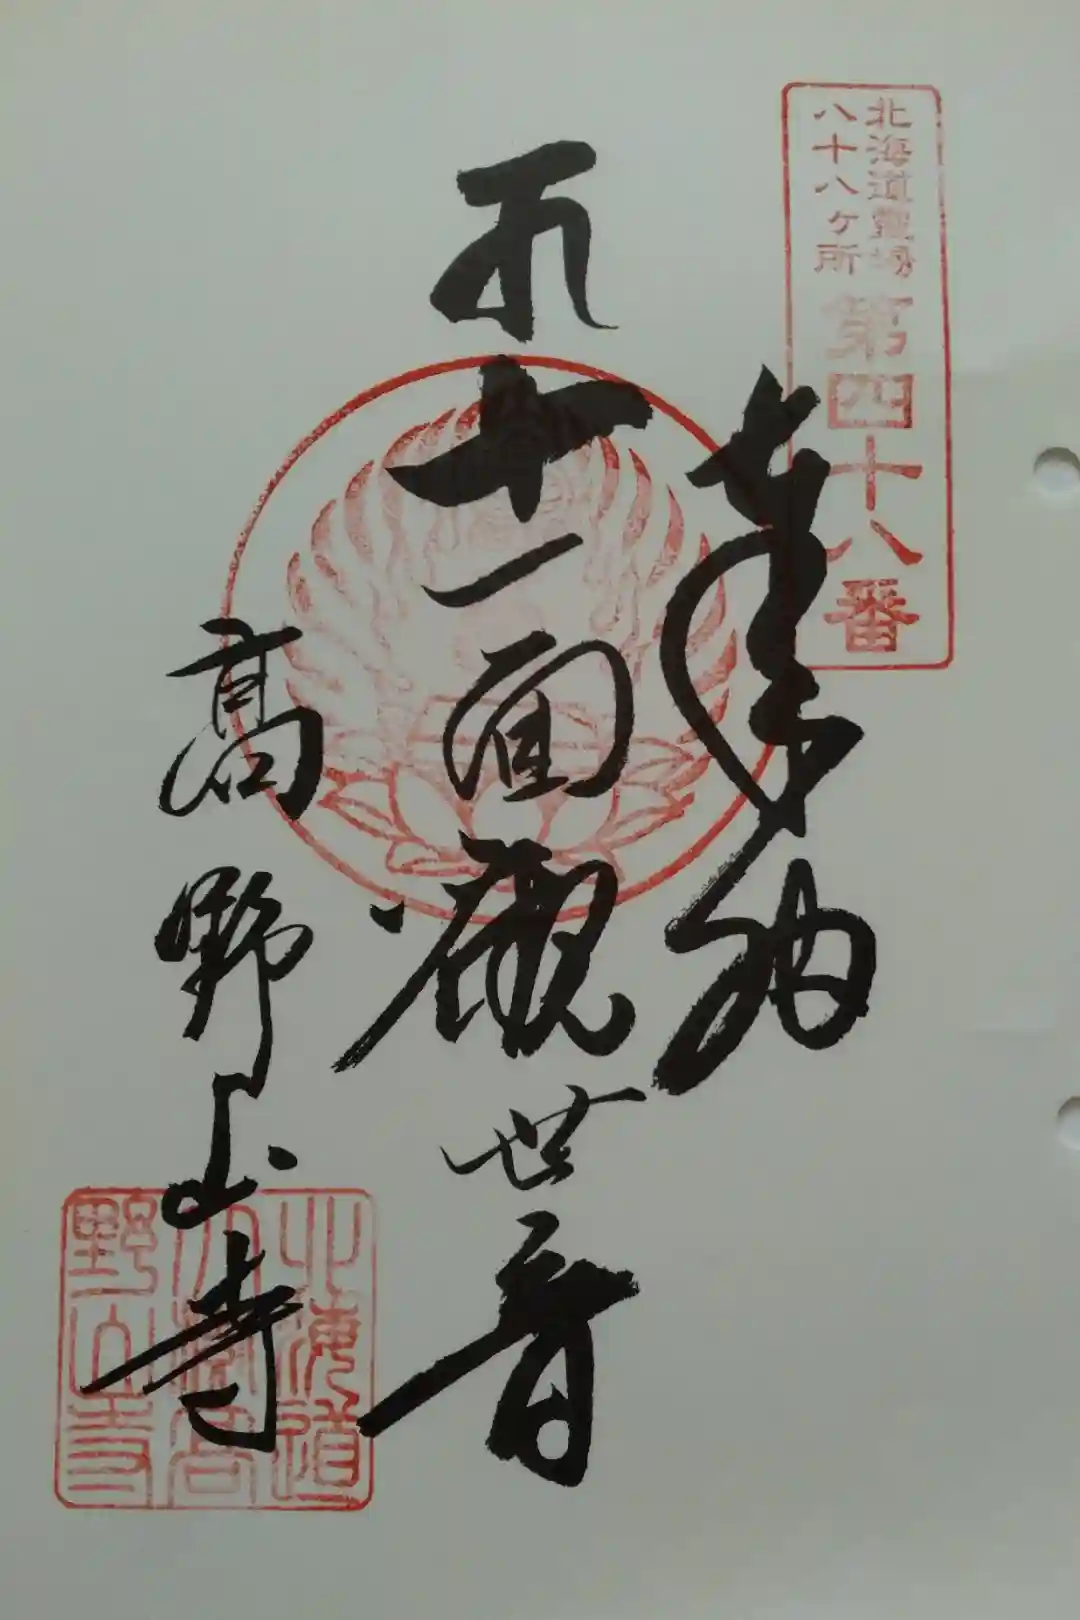 北海道靈場
八十八ヶ所
第四十八番
奉納
十一面觀世音
高野山寺
北海道
大樹高
野山寺